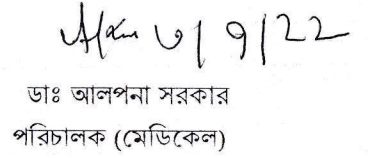 ৬/9/22
ডাঃ আলপনা সরকার
পরিচালক (মেডিকেল)